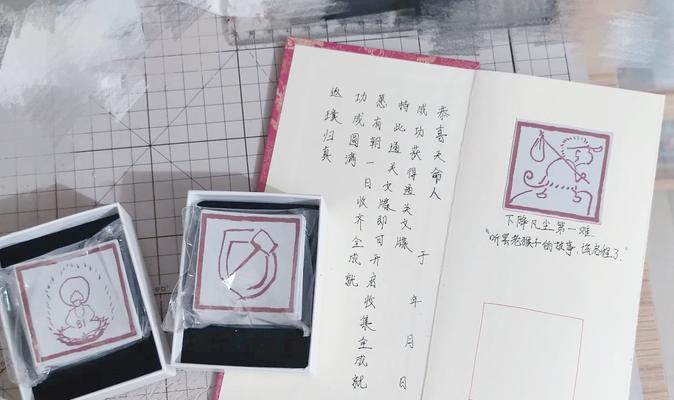 恭喜天命人
成功获得通关文牒 于 年 月 日
特此通关文牒即可开启收集全成就
愿有朝一日收齐全成就
功成圆满
返璞归真
下降凡尘第一难
"听罢老猴子的故事,该启程了"
81